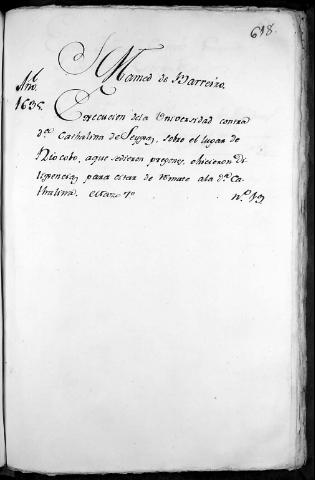 618.
S. Mamed de Barreiro.
Año.
1635. Execucion dela Universidad contra
d.ª Cathalina de Seyxas, sobre el lugar de
Riocobo, aque sedieron pregones, ehicieron Di
ligencias para citar de remate ala d.ª Ca-
thalina. Cítase 7º n.º 13